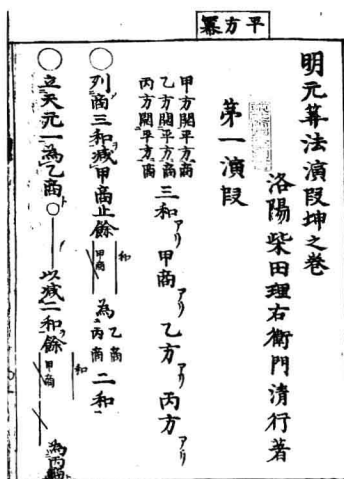 平方冪
明元算法演段坤之巻
洛陽柴田理右衛門清行著
第一演段
甲方開平方商
乙方開平方商
丙方開平方商
三和アリ 甲商アリ 乙方アリ 丙方アリ
○列商三和減甲商止餘
和
甲商
為乙商丙商二和
○立天元一為乙商○
以減二和餘
和
甲商
為丙商